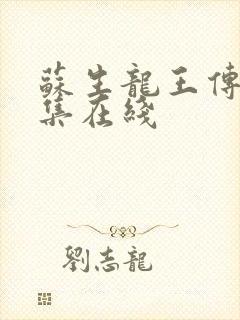 蘇生龍王傳
集在綫
劉志龍